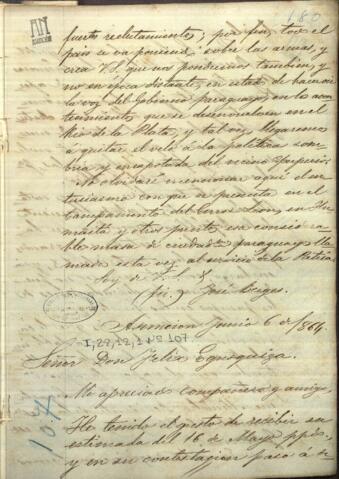 180
AN
fuerte reclutamiento; por fin, todo el
pais se va poniendo sobre las armas, y
crea V.S. que nos pondremos tambien, y
no en epoca distante, en estado de hacer oir
la voz del Gobierno paraguayo en los acon
tecimientos que se desenvuelven en el
Rio de la Plata, y tal vez, lleguemos
à quitar el velo à la politica som
bria y encapotada del vecino Imperio.
No olvidaré mencionar aqui el en
tusiasmo con que se presenta en el
Campamento del Cerro Leon, en Hu
maita y otros puntos esa conside ra
ble masa de ciudadanos paraguayos lla
mados esta vez al servicio de la Patria.
Soy de V.S. &
José Berges.
Asuncion Junio 6 de 1864.
I,22,12,1 Nº 107.
Señor Don Felix Egusquiza.
107
Mi apreciado compañero y amigo,
He tenido el gusto de recibir su
estimada del 16 de Mayo ppdo.
y en su contestacion paso à de